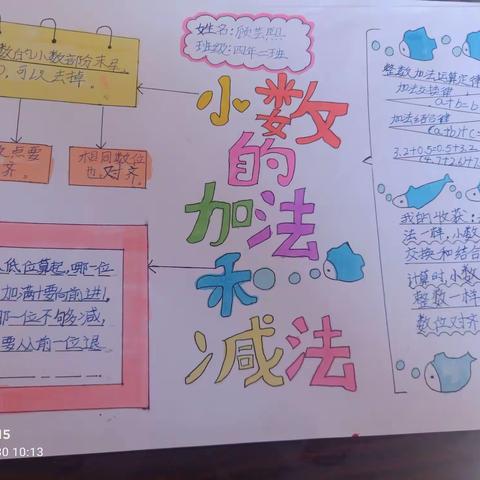 姓名:
班级:四年二班
小数
的
加法
和
减法
数的小数部分末尾
0,可以去掉。
点要
齐。
相同数位
也对齐。
低位算起,哪一位
加满十要向前进1,
那一位不够减,
要从前一位退
整数加法运算定律
加法交换律
a+b=b
加法结合律
(a+b)+c=
3.2+0.5=0.5+3.2
(4.7+2.6)+7
我的收获:
法一样,小数
交换和结合
计算时,小数
整数一样
数位对齐
15
30 10:13